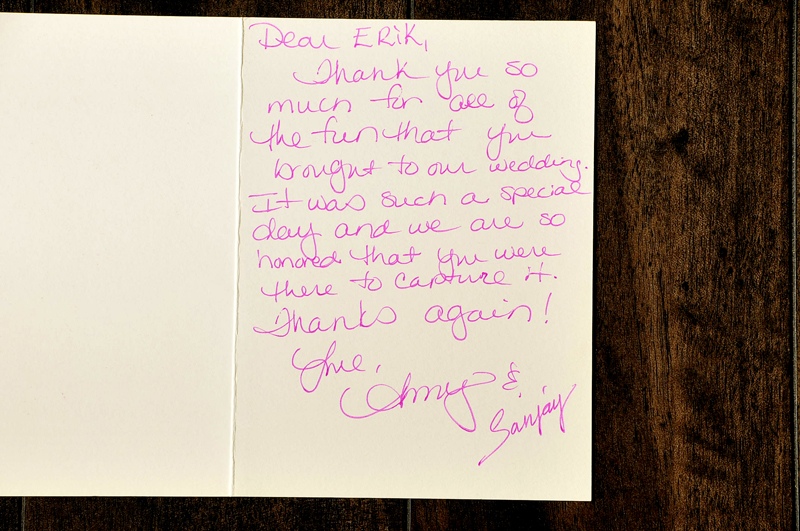 Dear ERiK,
Thank you so
much for all of
the fun that you
brought to our wedding.
It was such a special
day and we are so
honored that you were
there to capture it.
Thanks again!
Love,
Amy &
Sanjay